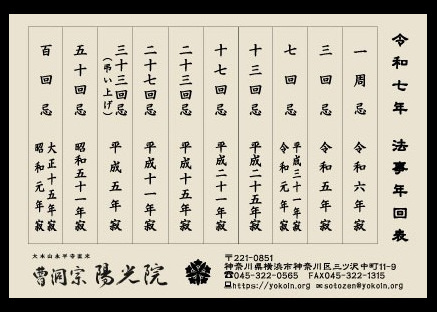 令和七年 法事年回表
一周忌 令和六年寂
三回忌 令和五年寂
七回忌 平成三十一年寂
令和元年寂
十三回忌 平成二十五年寂
十七回忌 平成二十一年寂
二十三回忌 平成十五年寂
二十七回忌 平成十一年寂
三十三回忌 平成五年寂
(弔い上げ)
五十回忌 昭和五十一年寂
百回忌 大正十五年寂
昭和元年寂
大本山永平寺直末
曹洞宗 陽光院
〒221-0851
神奈川県横浜市神奈川区三ツ沢中町11-9
☎045-322-0565 FAX045-322-1315
💻https://yokoin.org ✉sotozen@yokoin.org